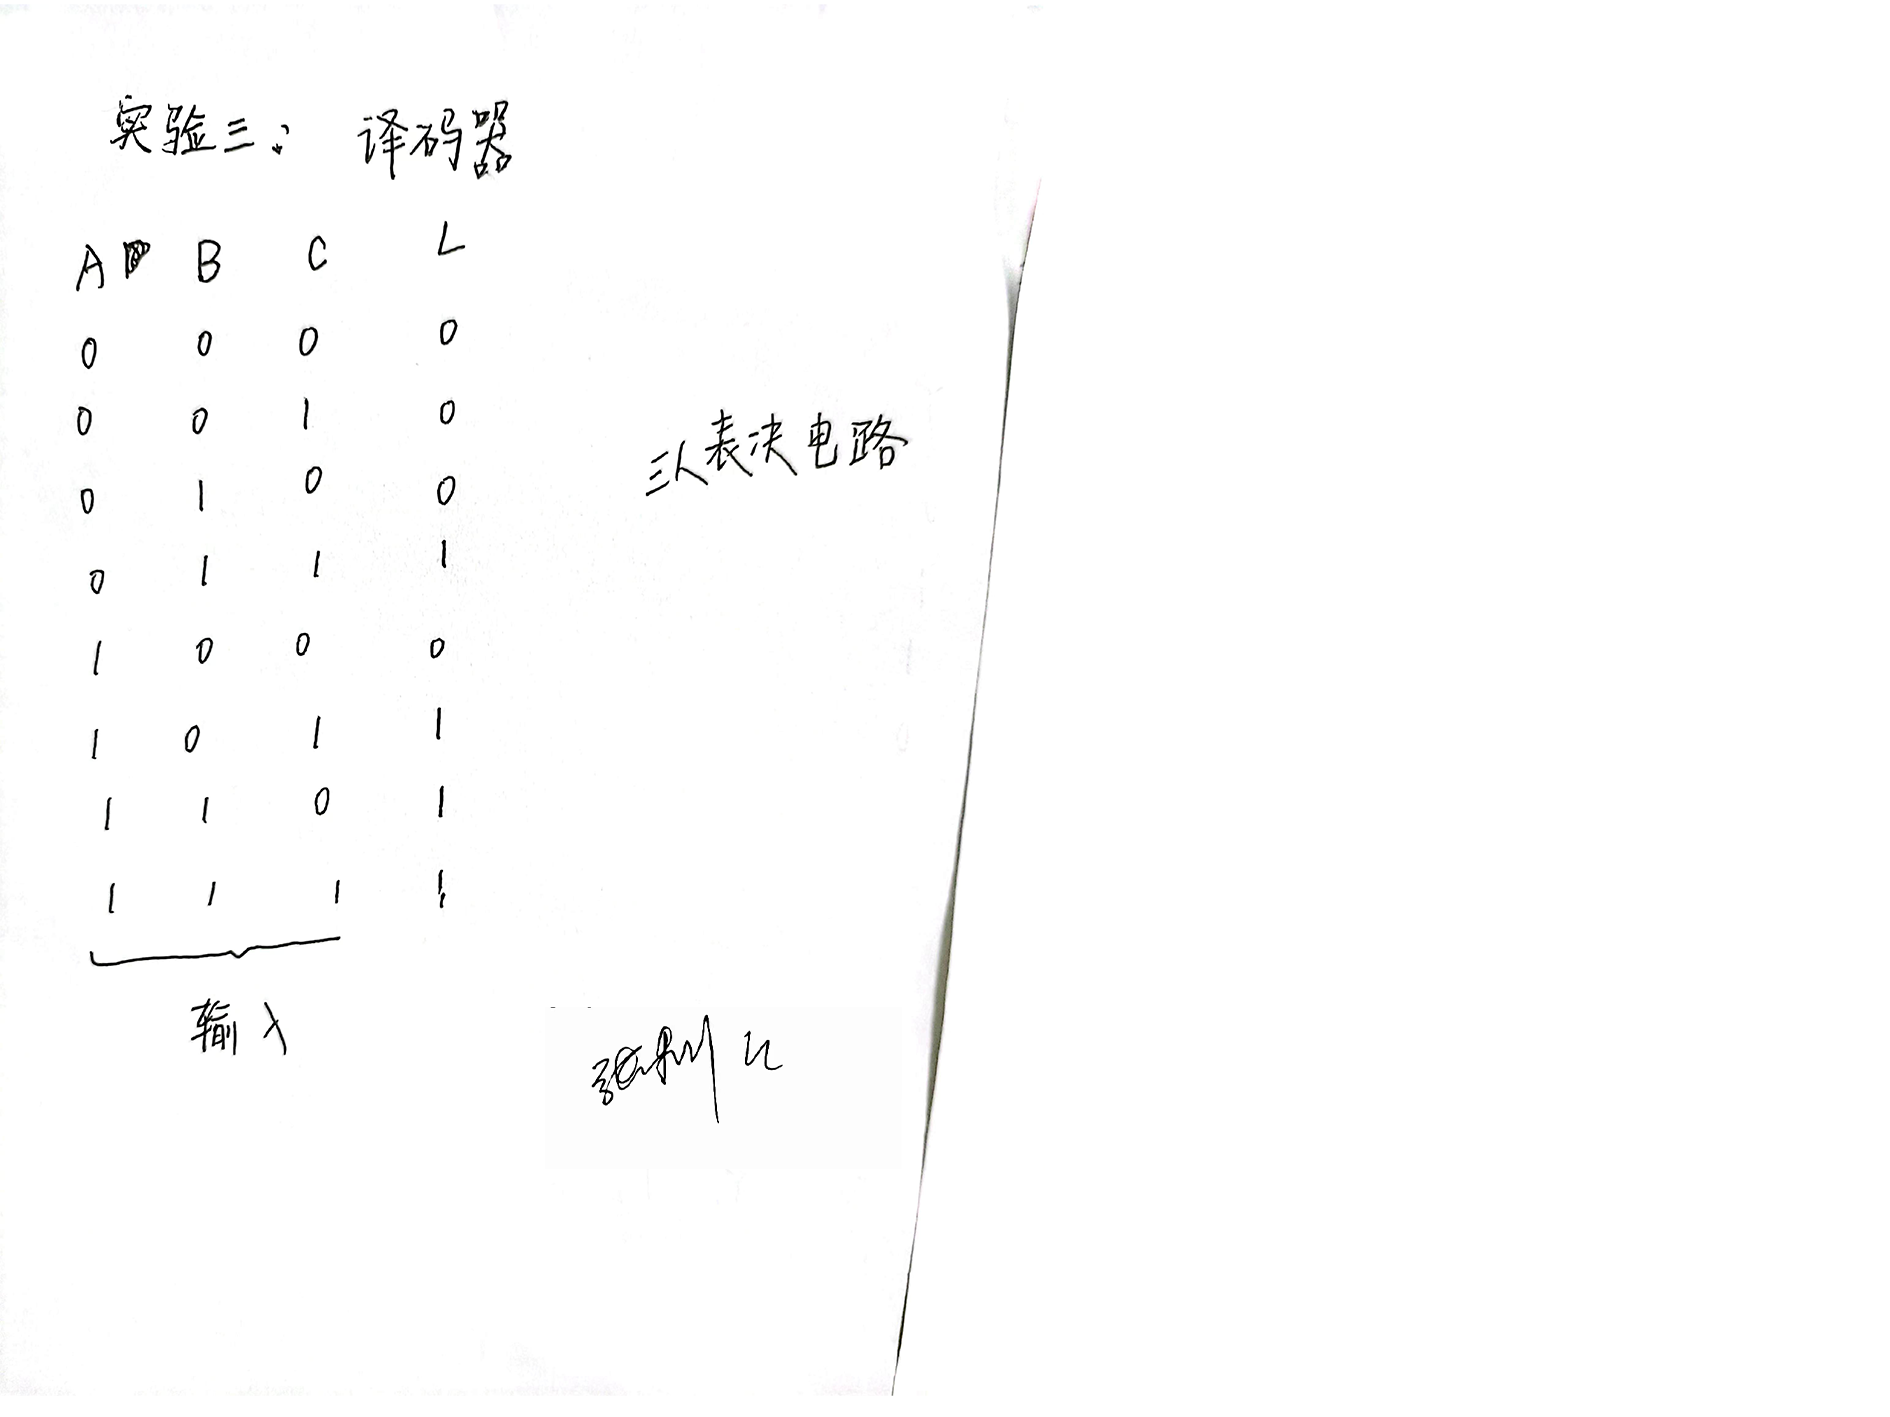 实验三： 译码器
A B C L
0 0 0 0
0 0 1 0
0 1 0 0
0 1 1 1
1 0 0 0
1 0 1 1
1 1 0 1
1 1 1 1
三人表决电路
输入